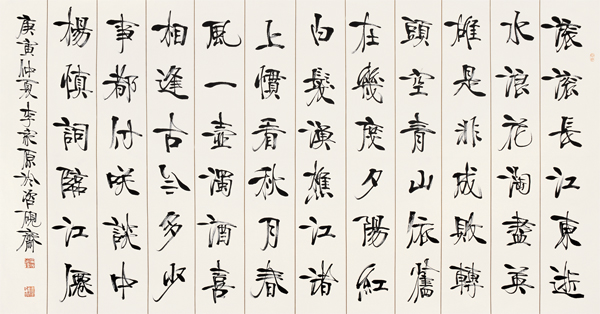 滾滾長江東逝
水浪花淘盡英
雄是非成敗轉
頭空青山依舊
在幾度夕陽紅
白髮漁樵江渚
上慣看秋月春
風一壺濁酒喜
相逢古今多少
事都付咲談中
楊慎詞臨江僊
庚寅仲夏李家原於硯齋